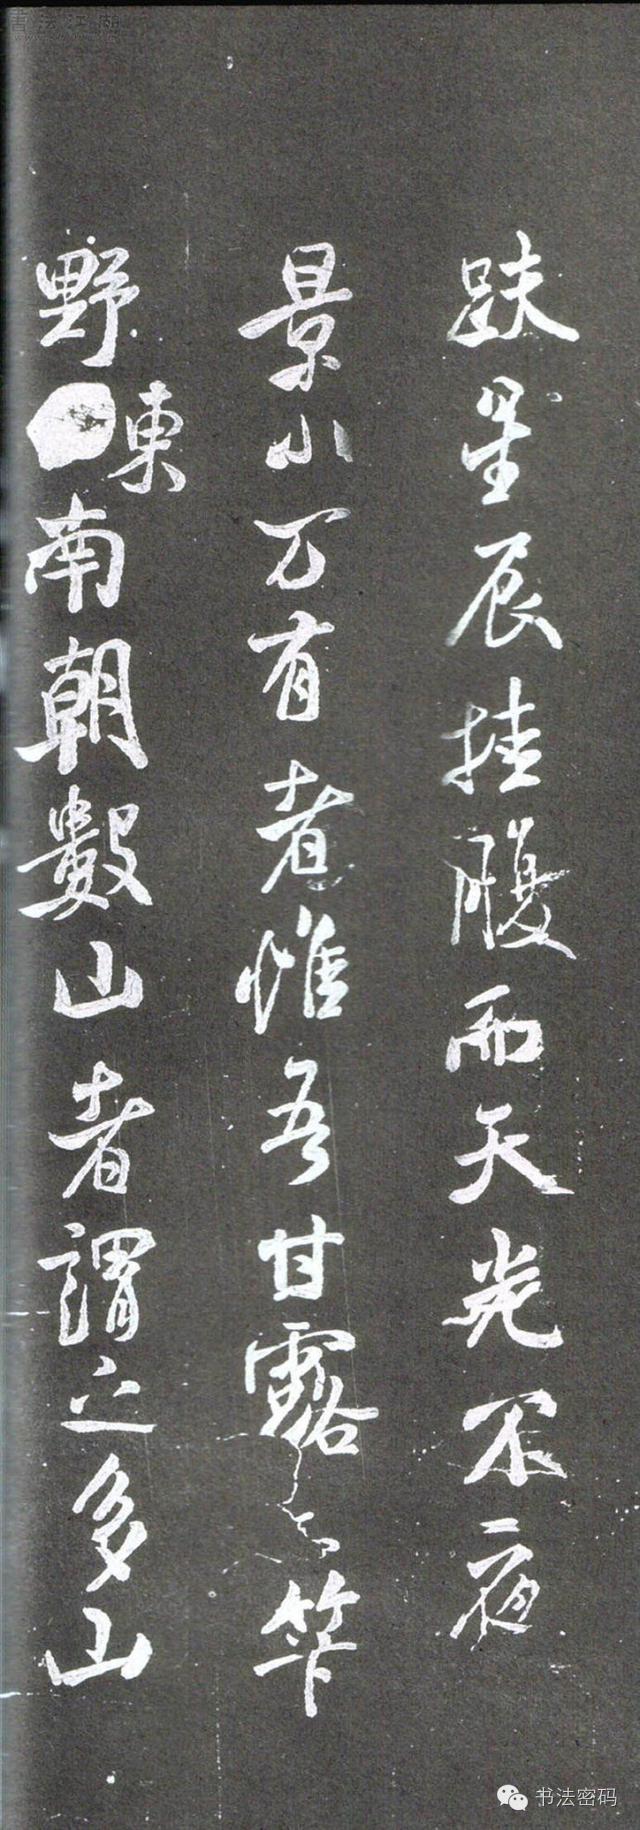 書法江湖
趺星辰挂腹而天光不夜
景小万有者惟吾甘露笮
野東南朝數山者謂之多山
书法密码